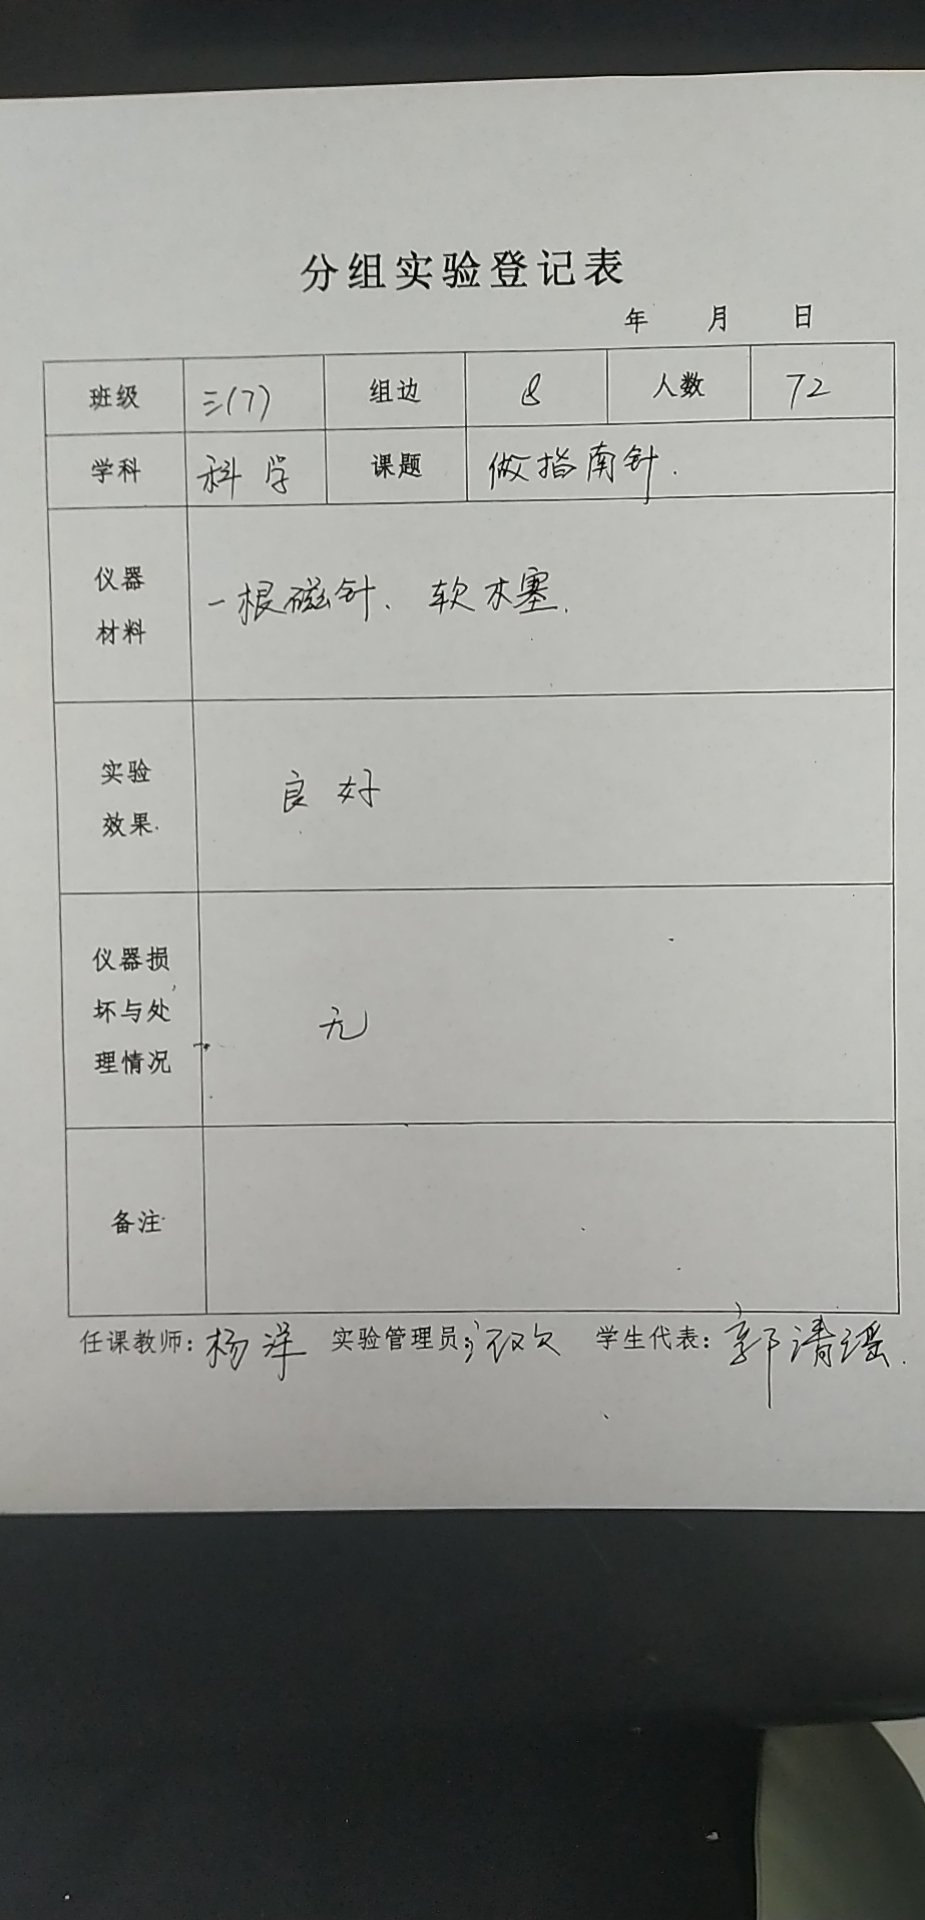 分组实验登记表
年 月 日
班级 三(7) 组边 8 人数 72
学科 科学 课题 做指南针.
仪器
材料
一根磁针、软木塞.
实验
效果
良好
仪器损
坏与处
理情况
无
备注
任课教师: 杨洋 实验管理员: 学生代表: 郭清瑶.